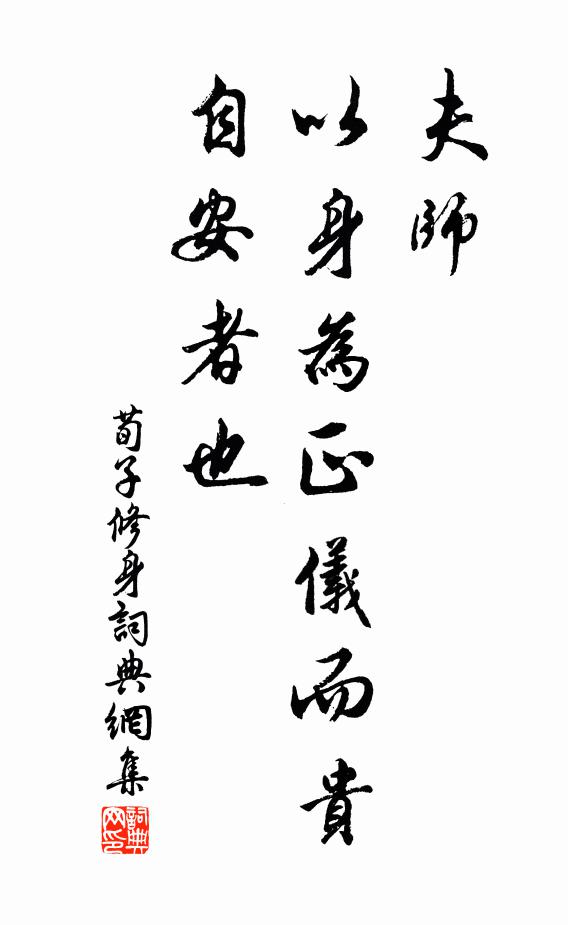 夫師
以身為正儀而貴
自安者也
荀子修身詞典網集
詞典网印